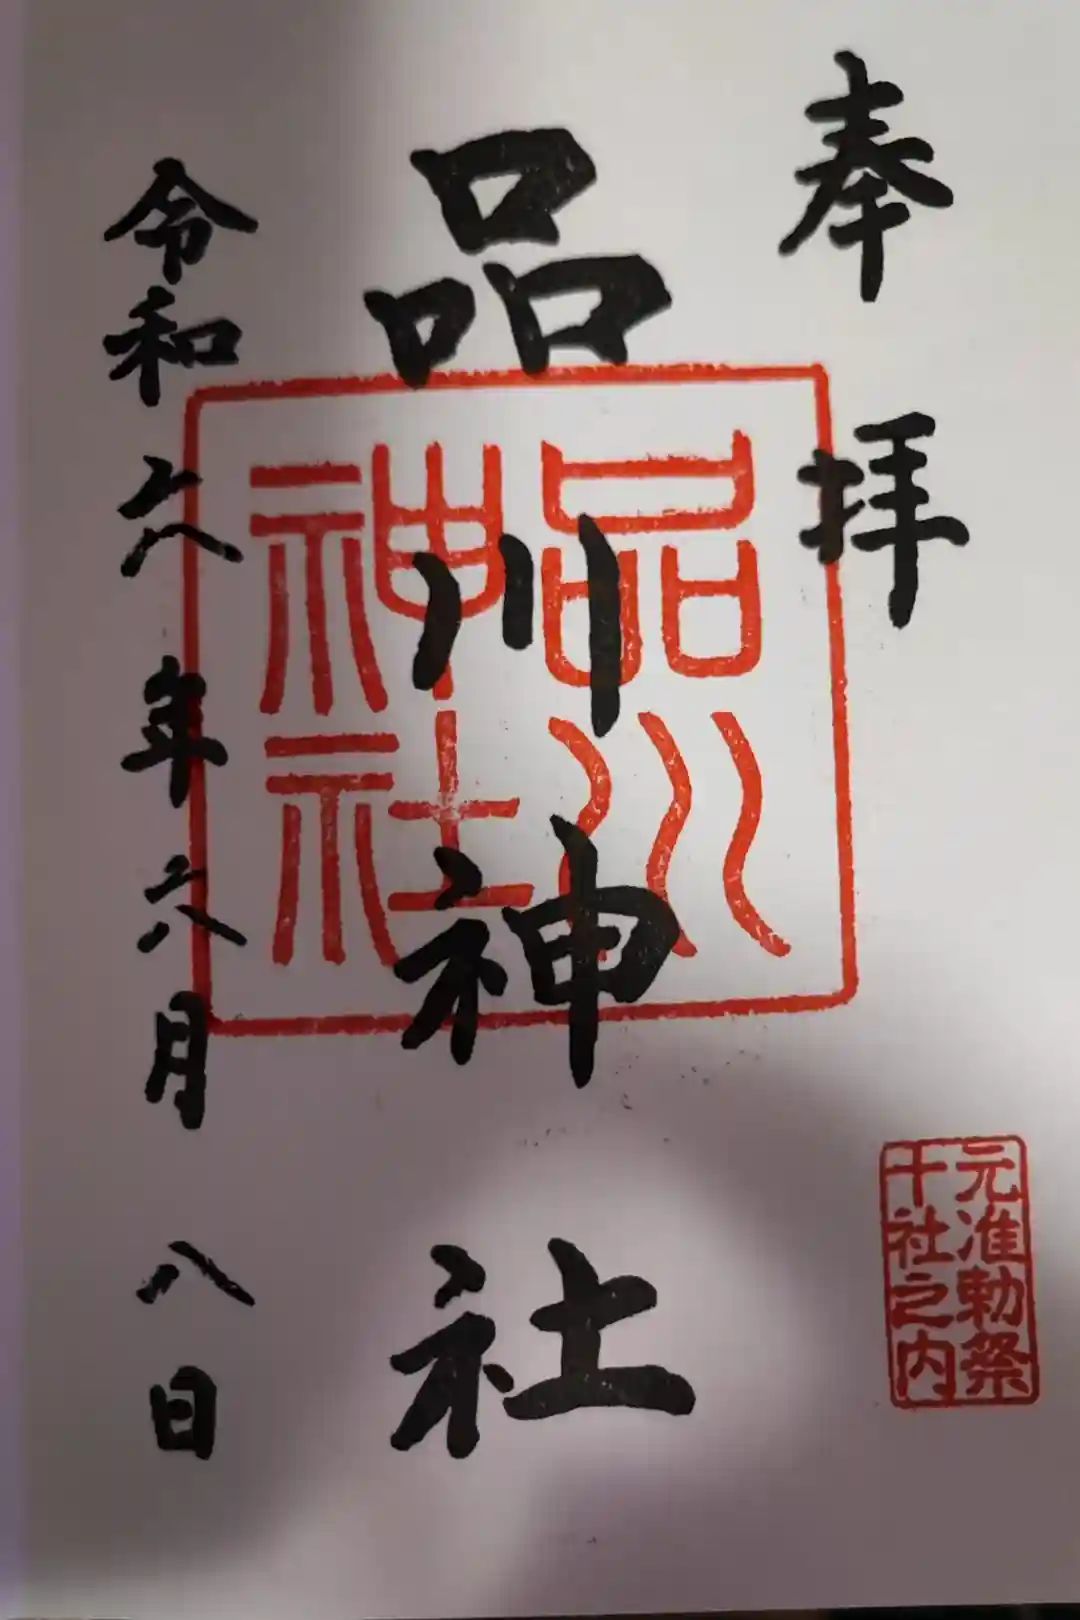 奉拝
元准勅祭
十社之内
品川神社
品川
神社
令和六年六月八日